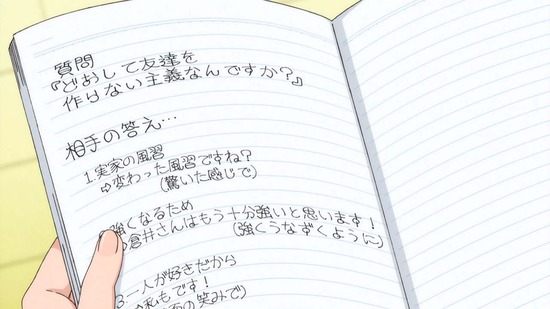 質問
『どおして友達を
作けない主義なんですか?』
相手の答え…
1.実家の風習
⇨変わった風習ですね?
(驚いた感じで)
強くなるため
倉井さんはもう十分強いと思います!
(強くうなずくように)
3.一人が好きだから
私もです!
の笑みで)